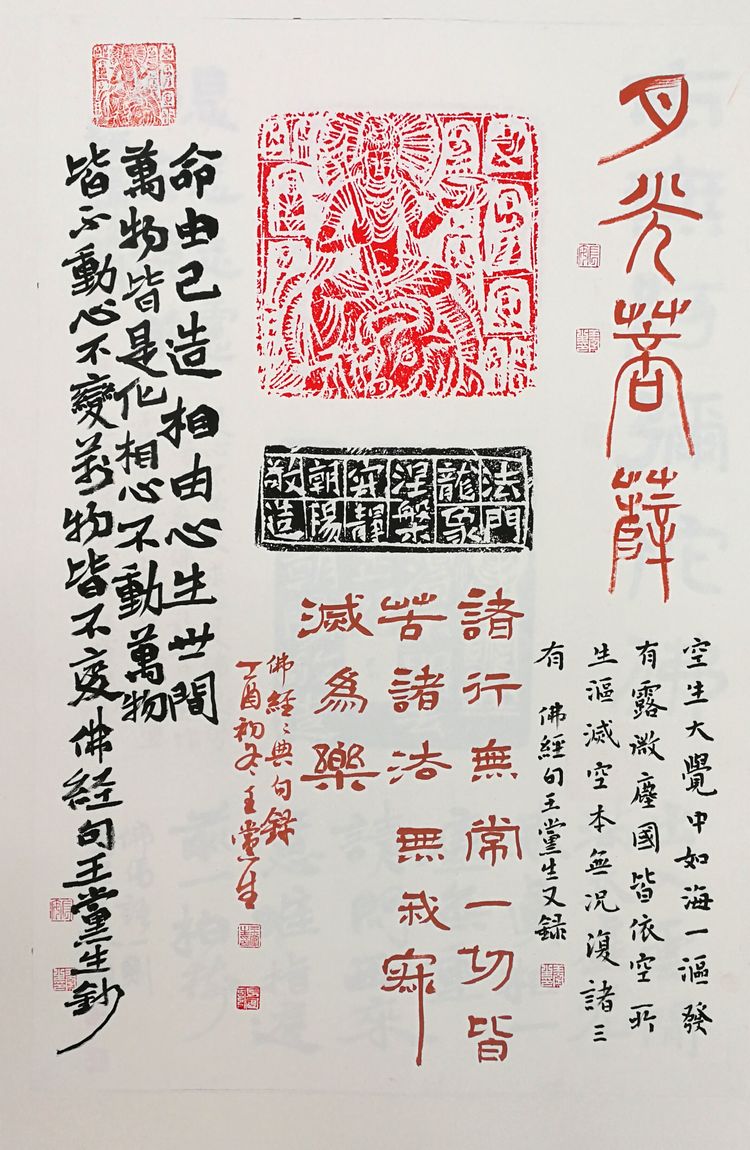 月光菩薩
空生大覺中如海一漚發
有露微塵國皆依空所
生漚滅空本無況復諸三
有 佛經句王黨生又録
法門
龍象
涅槃
朝陽
敬造
諸行無常一切皆
苦諸法無我寂
滅為樂
佛經〻典句録
丁酉初冬王黨生
命由己造相由心生世間
萬物皆是化相心不動萬物
皆不動心不變萬物皆不變佛経句王黨生鈔